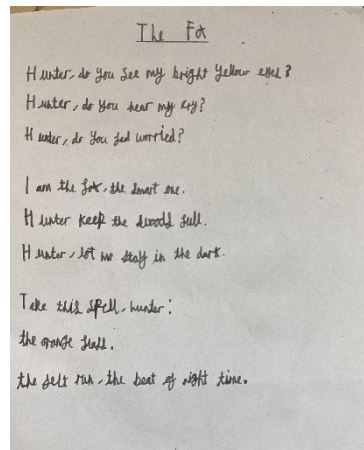 The Fox
Hunter, do you see my bright yellow eyes?
Hunter, do you hear my cry?
Hunter, do you feel worried?
I am the fox, the smart one.
Hunter keep the woods full.
Hunter, let me stay in the dark.
Take this spell, hunter:
the orange flash,
the felt run, the beat of night time.